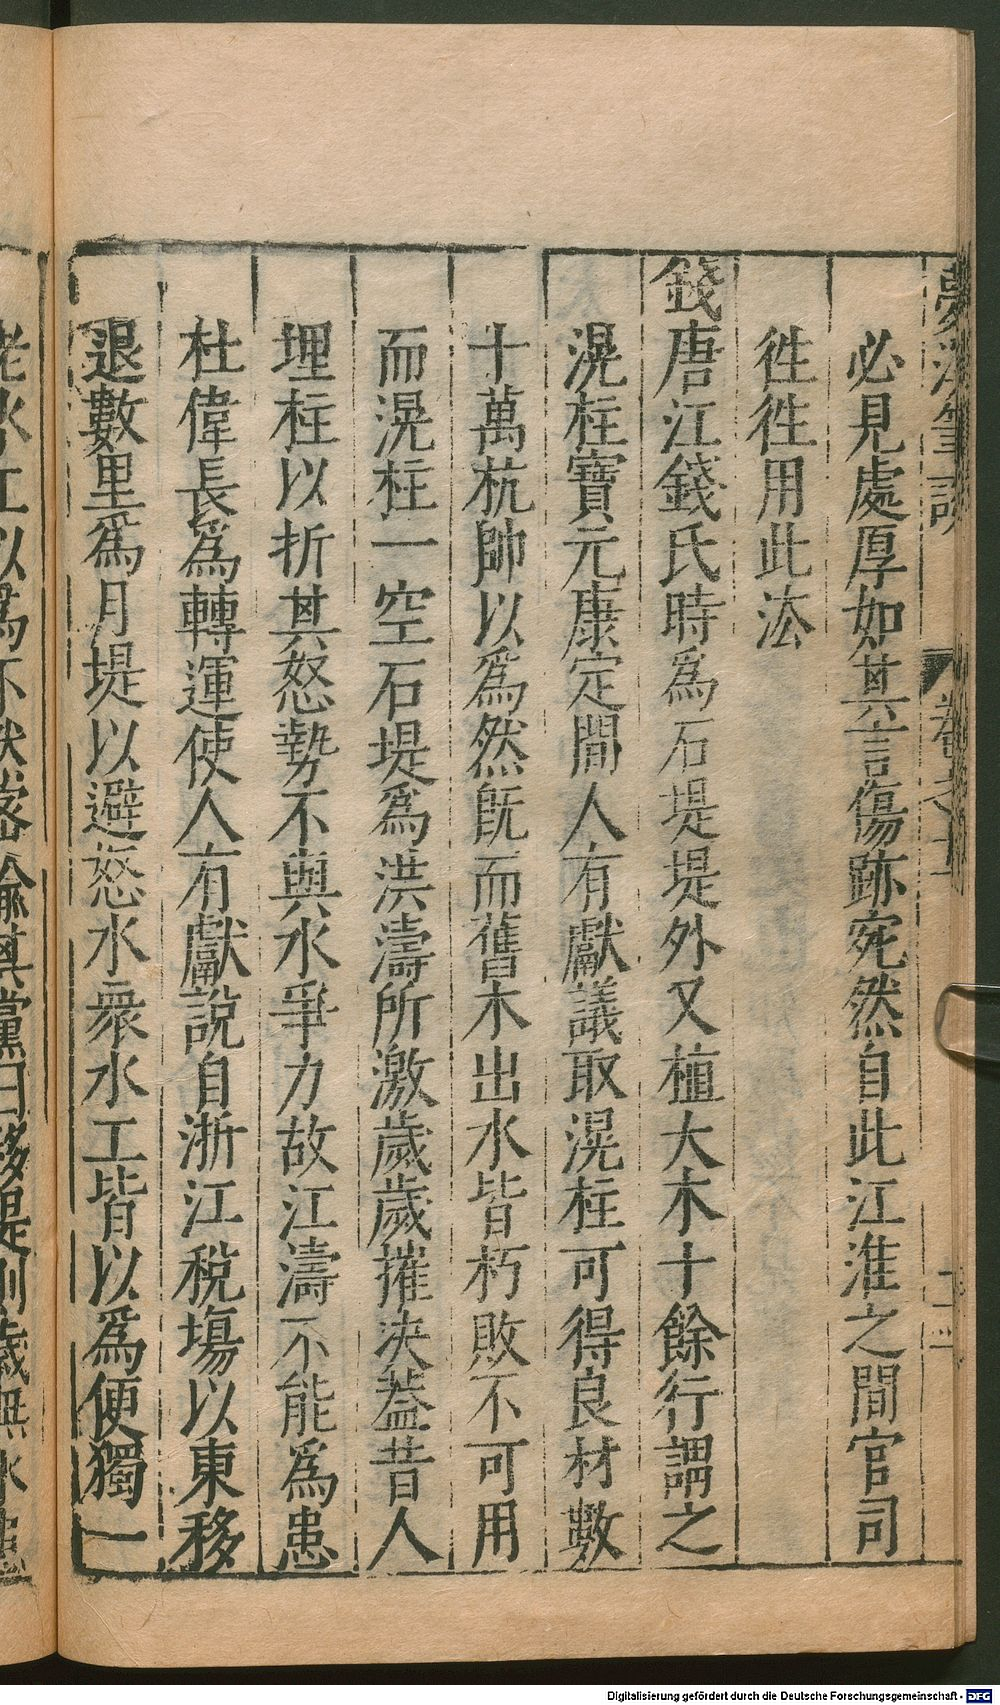 夢溪筆談 卷之十一
必見處厚如其言傷跡宛然自此江淮之間官司
徃徃用此法
錢唐江錢氏時爲石堤堤外又植大木十餘行謂之
滉柱寶元康定間人有獻議取滉柱可得良材數
十萬杭帥以爲然旣而舊木出水皆朽敗不可用
而滉柱一空石堤爲洪濤所激歲歲摧決葢昔人
埋柱以折其怒勢不與水爭力故江濤不能爲患
杜偉長爲轉運使人有獻說自浙江稅場以東移
退數里爲月堤以避怒水衆水工皆以爲便獨一
老水工以爲不然密諭其黨曰移堤則歲無水患
Digitalisierung gefördert durch die Deutsche Forschungsgemeinschaft - DFG